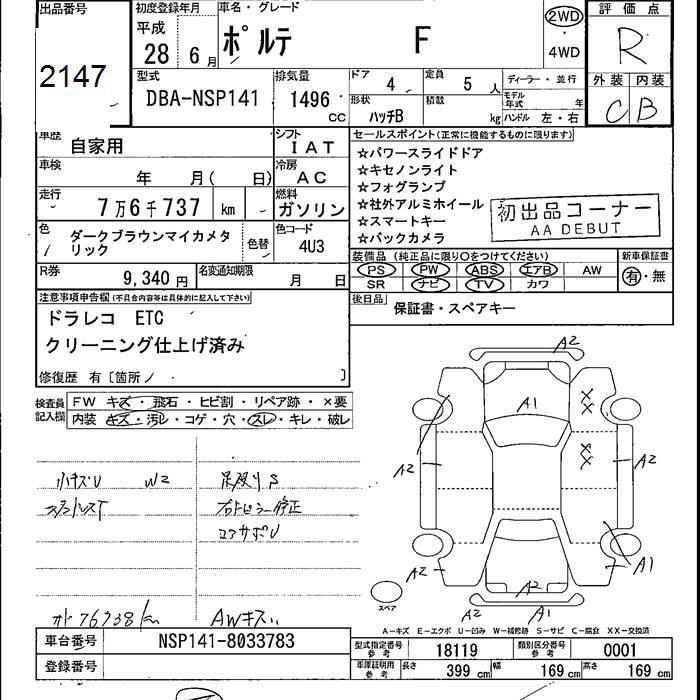 出品番号
2147
初度登録年月
平成
28 6月
車名・グレード
ポルテ F
2WD
・
4WD
評価点
R
外装 内装
C B
型式
DBA-NSP141
排気量
1496 cc
ドア 4
定員 5 人
ディーラー・並行
形状 ハッチB
積載 kg
モデル年式 年
ハンドル 左・右
車歴 自家用
シフト IAT
車検 年 月( 日)
冷房 AC
走行 7万6千737 km
燃料 ガソリン
色 ダークブラウンマイカメタリック
色替
色コード 4U3
R券 9,340円
名変通知期限 月 日
セールスポイント(正常に機能するものに限ります)
☆パワースライドドア
☆キセノンライト
☆フォグランプ
☆社外アルミホイール
☆スマートキー
☆バックカメラ
初出品コーナー
AA DEBUT
装備品(純正品に限り○をつけてください)
PS PW ABS エアB AW
SR ナビ TV カワ
新車保証書
有・無
後日品 保証書・スペアキー
注意事項申告欄(不具合内容等は具体的に記入して下さい)
ドラレコ ETC
クリーニング仕上げ済み
修復歴 有〔箇所 〕
検査員記入欄
FW キズ・飛石・ヒビ割・リペア跡・×要
内装 キズ・汚レ・コゲ・穴・スレ・キレ・破レ
小キズU W2
足廻りS
コアサポU
オド76738km AWキズ
A2
A1
A2
A2
A2
A1
A2
W2
A1
スペア
A-キズ E-エクボ U-凹み W-補修跡 S-サビ C-腐食 XX-交換済
車台番号 NSP141-8033783
登録番号
型式指定番号参考 18119
類別区分番号参考 0001
車庫証明用参考 長さ 399 cm 幅 169 cm 高さ 169 cm